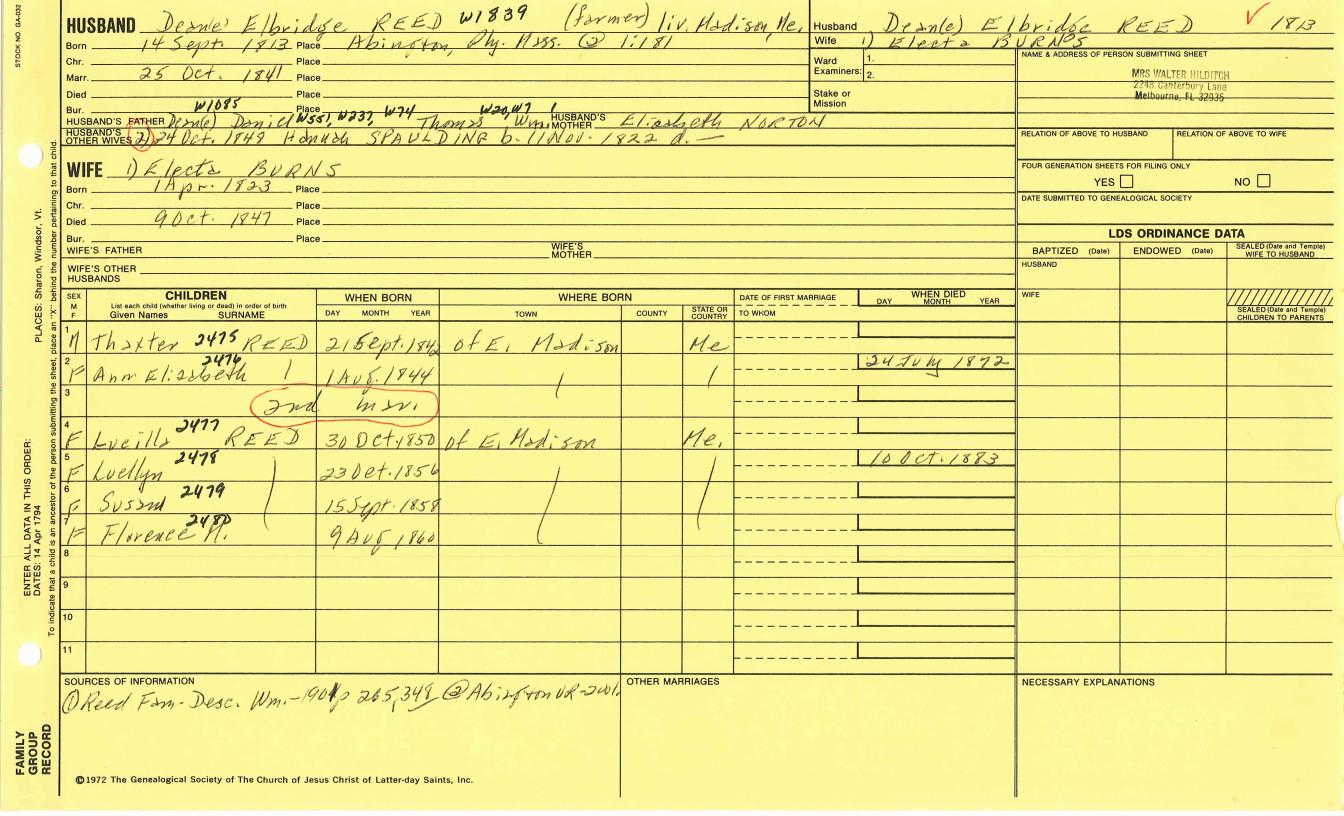 STOCK NO. GA-032
HUSBAND Deane Elbridge REED W1839 (farmer) liv. Madison, Me.
Born 14 Sept. 1813 Place Abington, Ply. Mass. @ 1:181
Chr. Place
Marr. 25 Oct. 1841 Place
Died Place
Bur. W1085 Place
HUSBAND'S FATHER Dean(e) Daniel W551, W237, W74 Thomas W20, W7 Wm. 1 HUSBAND'S MOTHER Elizabeth NORTON
HUSBAND'S OTHER WIVES 2) 24 Oct. 1849 Hannah SPAULDING b. 11 Nov. 1822 d. —
WIFE 1) Electa BURNS
Born 1 Apr. 1823 Place
Chr. Place
Died 9 Oct. 1847 Place
Bur. Place
WIFE'S FATHER WIFE'S MOTHER
WIFE'S OTHER HUSBANDS
Husband Dean(e) Elbridge REED ✓ 1813
Wife 1) Electa BURNS
Ward Examiners: 1.
2.
Stake or Mission
NAME & ADDRESS OF PERSON SUBMITTING SHEET
MRS WALTER HILDITCH
2248 Canterbury Lane
Melbourne, FL 32935
RELATION OF ABOVE TO HUSBAND RELATION OF ABOVE TO WIFE
FOUR GENERATION SHEETS FOR FILING ONLY
YES NO
DATE SUBMITTED TO GENEALOGICAL SOCIETY
LDS ORDINANCE DATA
BAPTIZED (Date) ENDOWED (Date) SEALED (Date and Temple) WIFE TO HUSBAND
HUSBAND
WIFE
SEALED (Date and Temple) CHILDREN TO PARENTS
SEX M F CHILDREN List each child (whether living or dead) in order of birth Given Names SURNAME WHEN BORN DAY MONTH YEAR WHERE BORN TOWN COUNTY STATE OR COUNTRY DATE OF FIRST MARRIAGE TO WHOM WHEN DIED DAY MONTH YEAR
1 M Thaxter 2475 REED 21 Sept. 1842 of E. Madison Me
2 F Ann Elizabeth 2476 1 Aug. 1844 24 July 1872
3 2nd mar.
4 F Lucilla 2477 REED 30 Oct. 1850 of E. Madison Me.
5 F Luellyn 2478 23 Oct. 1856 10 Oct. 1883
6 F Susan 2479 15 Sept. 1858
7 F Florence M. 2480 9 Aug. 1860
8
9
10
11
SOURCES OF INFORMATION
① Reed Fam- Desc. Wm.-1901 p 265, 348 @ Abington VR-
OTHER MARRIAGES
NECESSARY EXPLANATIONS
©1972 The Genealogical Society of The Church of Jesus Christ of Latter-day Saints, Inc.
FAMILY GROUP RECORD
ENTER ALL DATA IN THIS ORDER:
DATES: 14 Apr 1794
PLACES: Sharon, Windsor, Vt.
To indicate that a child is an ancestor of the person submitting the sheet, place an "X" behind the number pertaining to that child.